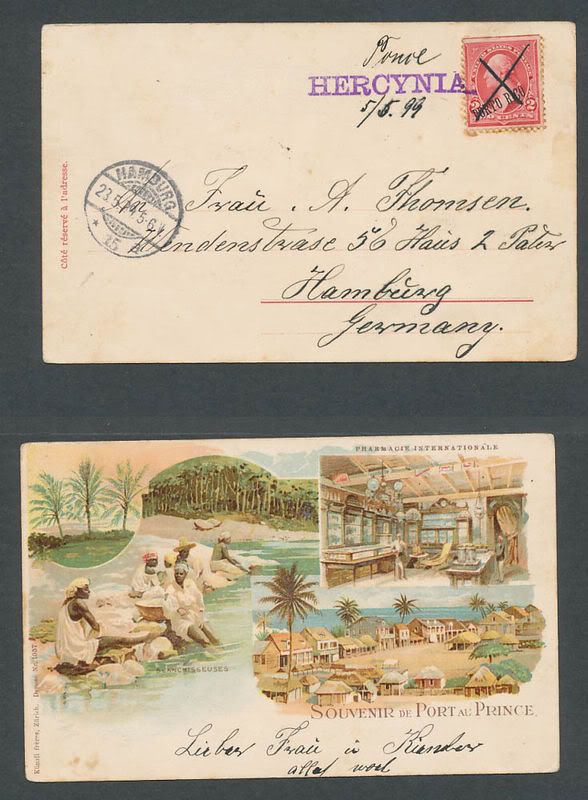 Ponce
HERCYNIA
5/5.99
UNITED STATES POSTAGE
PORTO RICO
2 2
CENTS
HAMBURG
23.5.99.5-6N
* 15
Côté réservé à l'adresse.
Frau. A. Thomsen.
56 Haus 2 Patur
Hamburg
Germany.
PHARMACIE INTERNATIONALE
BLANCHISSEUSES
SOUVENIR DE PORT AU PRINCE.
Künzli frères, Zürich. Dessin No. 1037
Lieber Frau u Kinder
alles wol